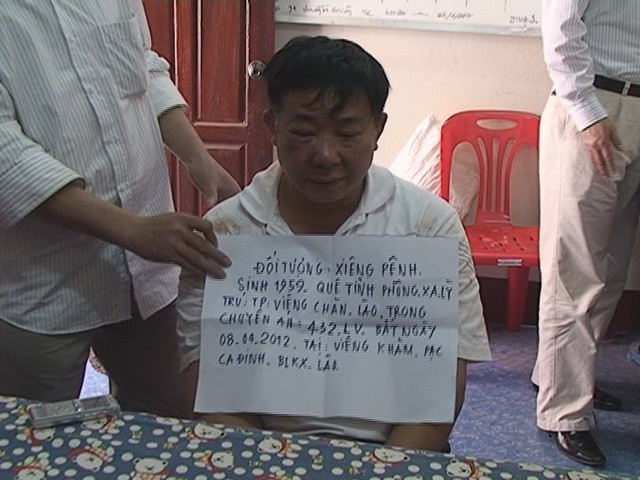 ĐỐI TƯỢNG: XIÊNG PÊNH.
SINH 1959. QUÊ TỈNH PHÔNG.XA.LỲ
TRÚ: TP. VIÊNG CHĂN. LÀO. TRONG
CHUYÊN ÁN: 432.LV. BẮT NGÀY
08.00.2012. TẠI: VIÊNG KHĂM. PẠC
CA ĐINH. BLKX. LÀO